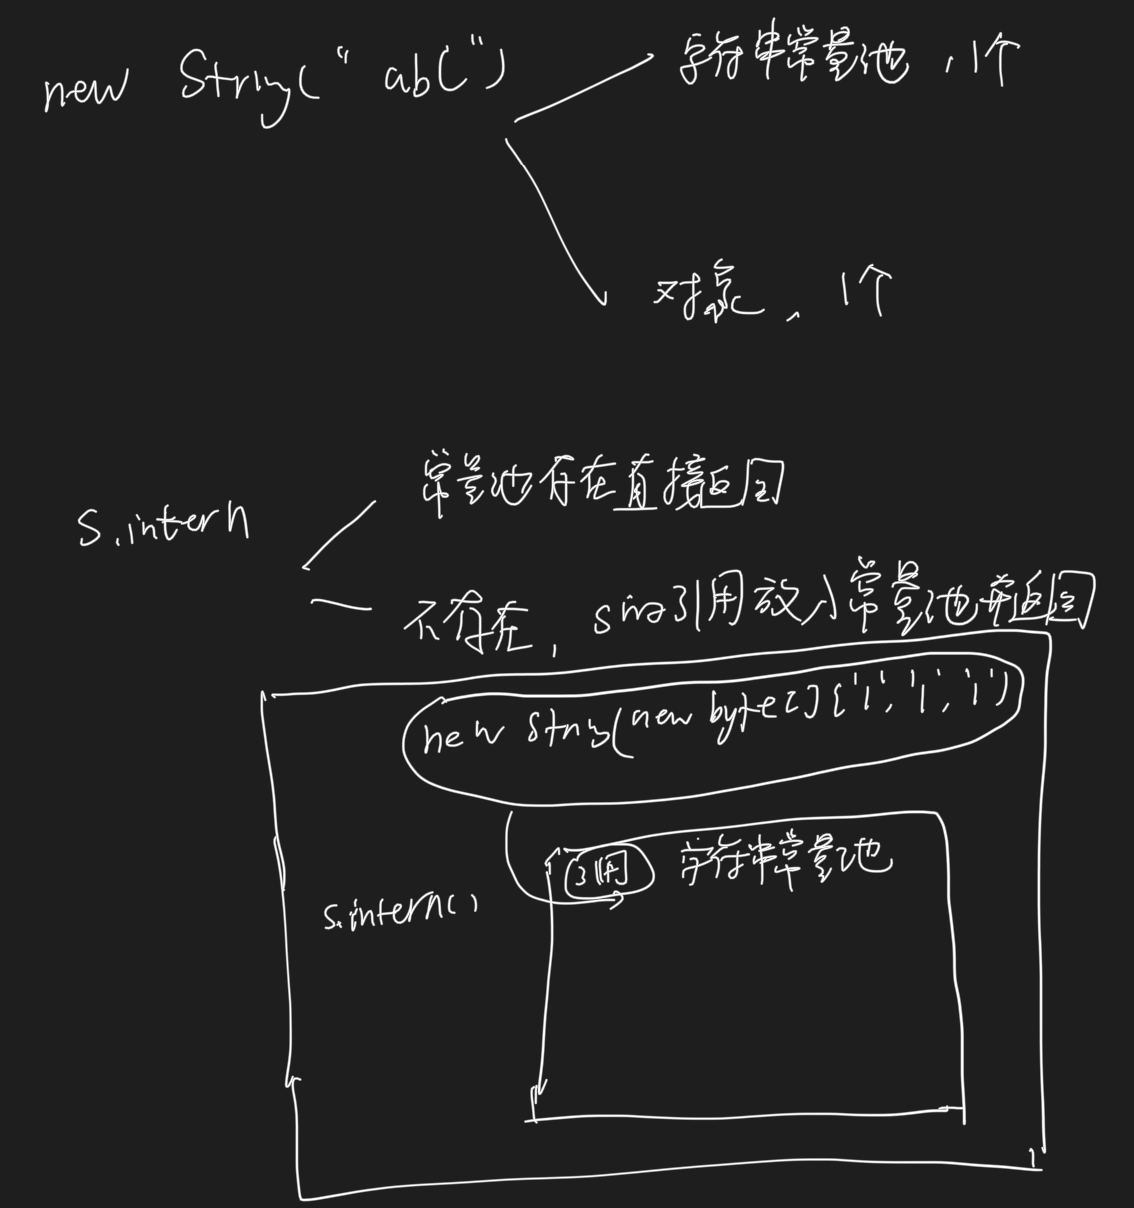 new String("abc")
字符串常量池，1个
对象，1个
s.intern
常量池存在直接返回
不存在，s的引用放入常量池并返回
new String(new byte[]{'1','1','1')
引用 字符串常量池
s.intern()